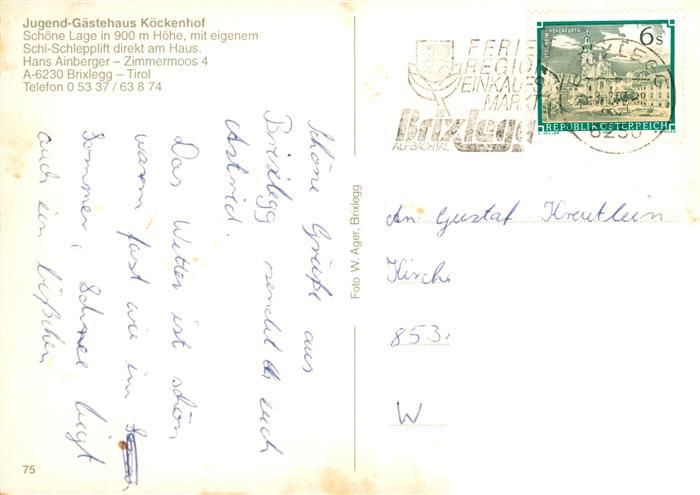 Jugend-Gästehaus Köckenhof
Schöne Lage in 900 m Höhe, mit eigenem
Schi-Schlepplift direkt am Haus.
Hans Ainberger – Zimmermoos 4
A-6230 Brixlegg – Tirol
Telefon 0 53 37 / 63 8 74
Schöne Grüße aus
Brixlegg sendet euch
Astrid.
Das Wetter ist schön
warm fast wie im
Sommer, Schnee liegt
auch ein bißchen
75
Foto W. Ager, Brixlegg
FERIEN
REGION
EINKAUFS
MARKT
Brixlegg
ALPBACHTAL
BRIXLEGG
6230
6 S
REPUBLIK ÖSTERREICH
An Gustaf Kreutlein
Kirche
8531
W